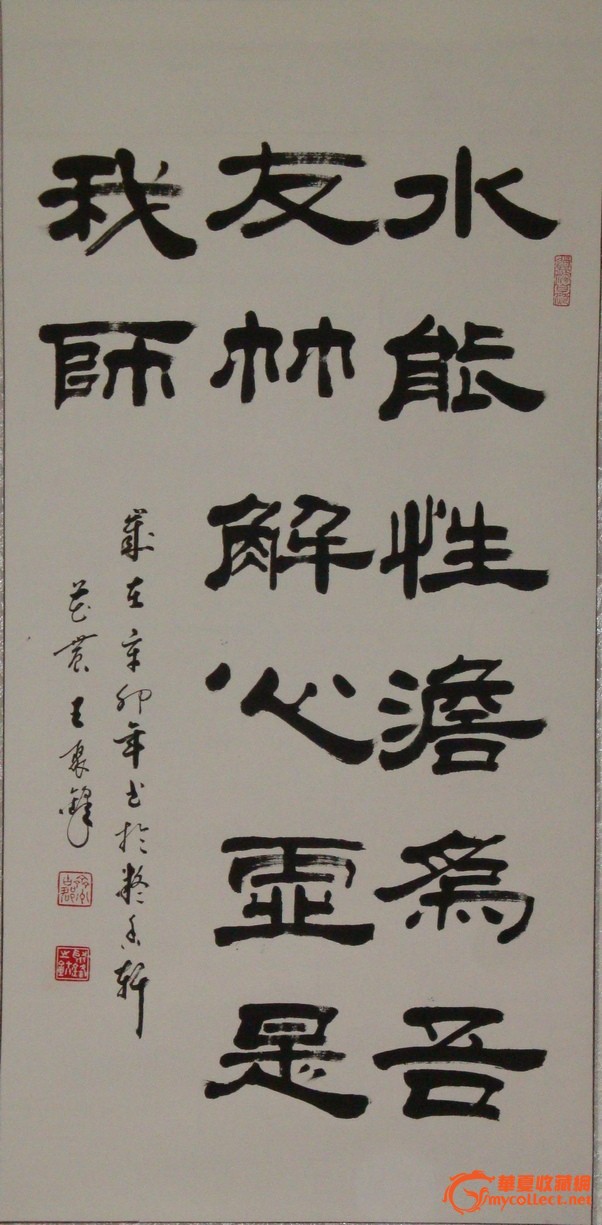 水能性澹為吾
友竹解心虛是
我師
歲在辛卯年书於香軒
王東鋒
華夏收藏網
mycollect.net